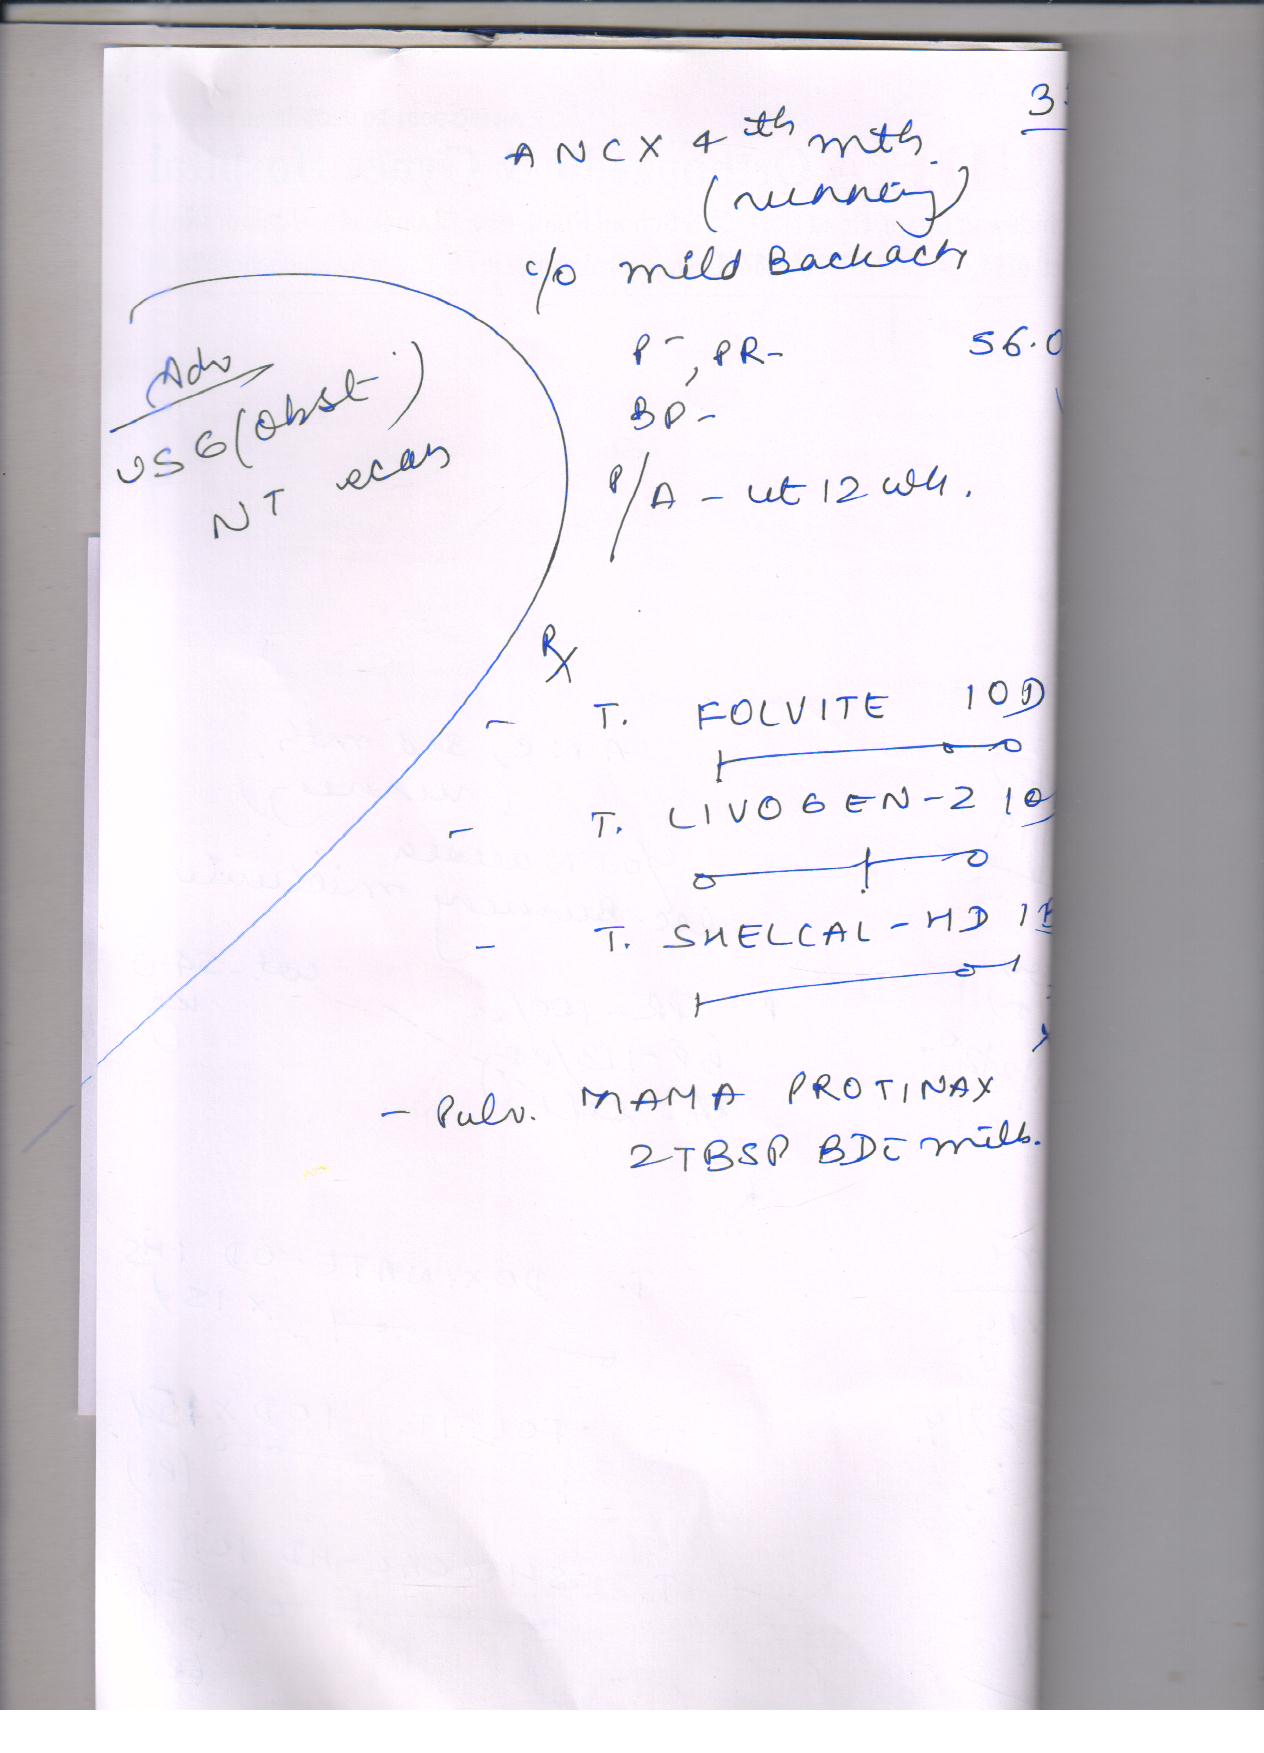 3
ANC X 4th mth.
(running)
c/o mild Backache
P - , PR - 56.0
BP -
P/A - ut 12 wk.
Adv
USG (obst.)
NT scan
Rx
- T. FOLVITE 1OD
- T. LIVOGEN-Z 1O
- T. SHELCAL-HD 1B
- Pulv. MAMA PROTINAX
2 TBSP BD c̄ milk.